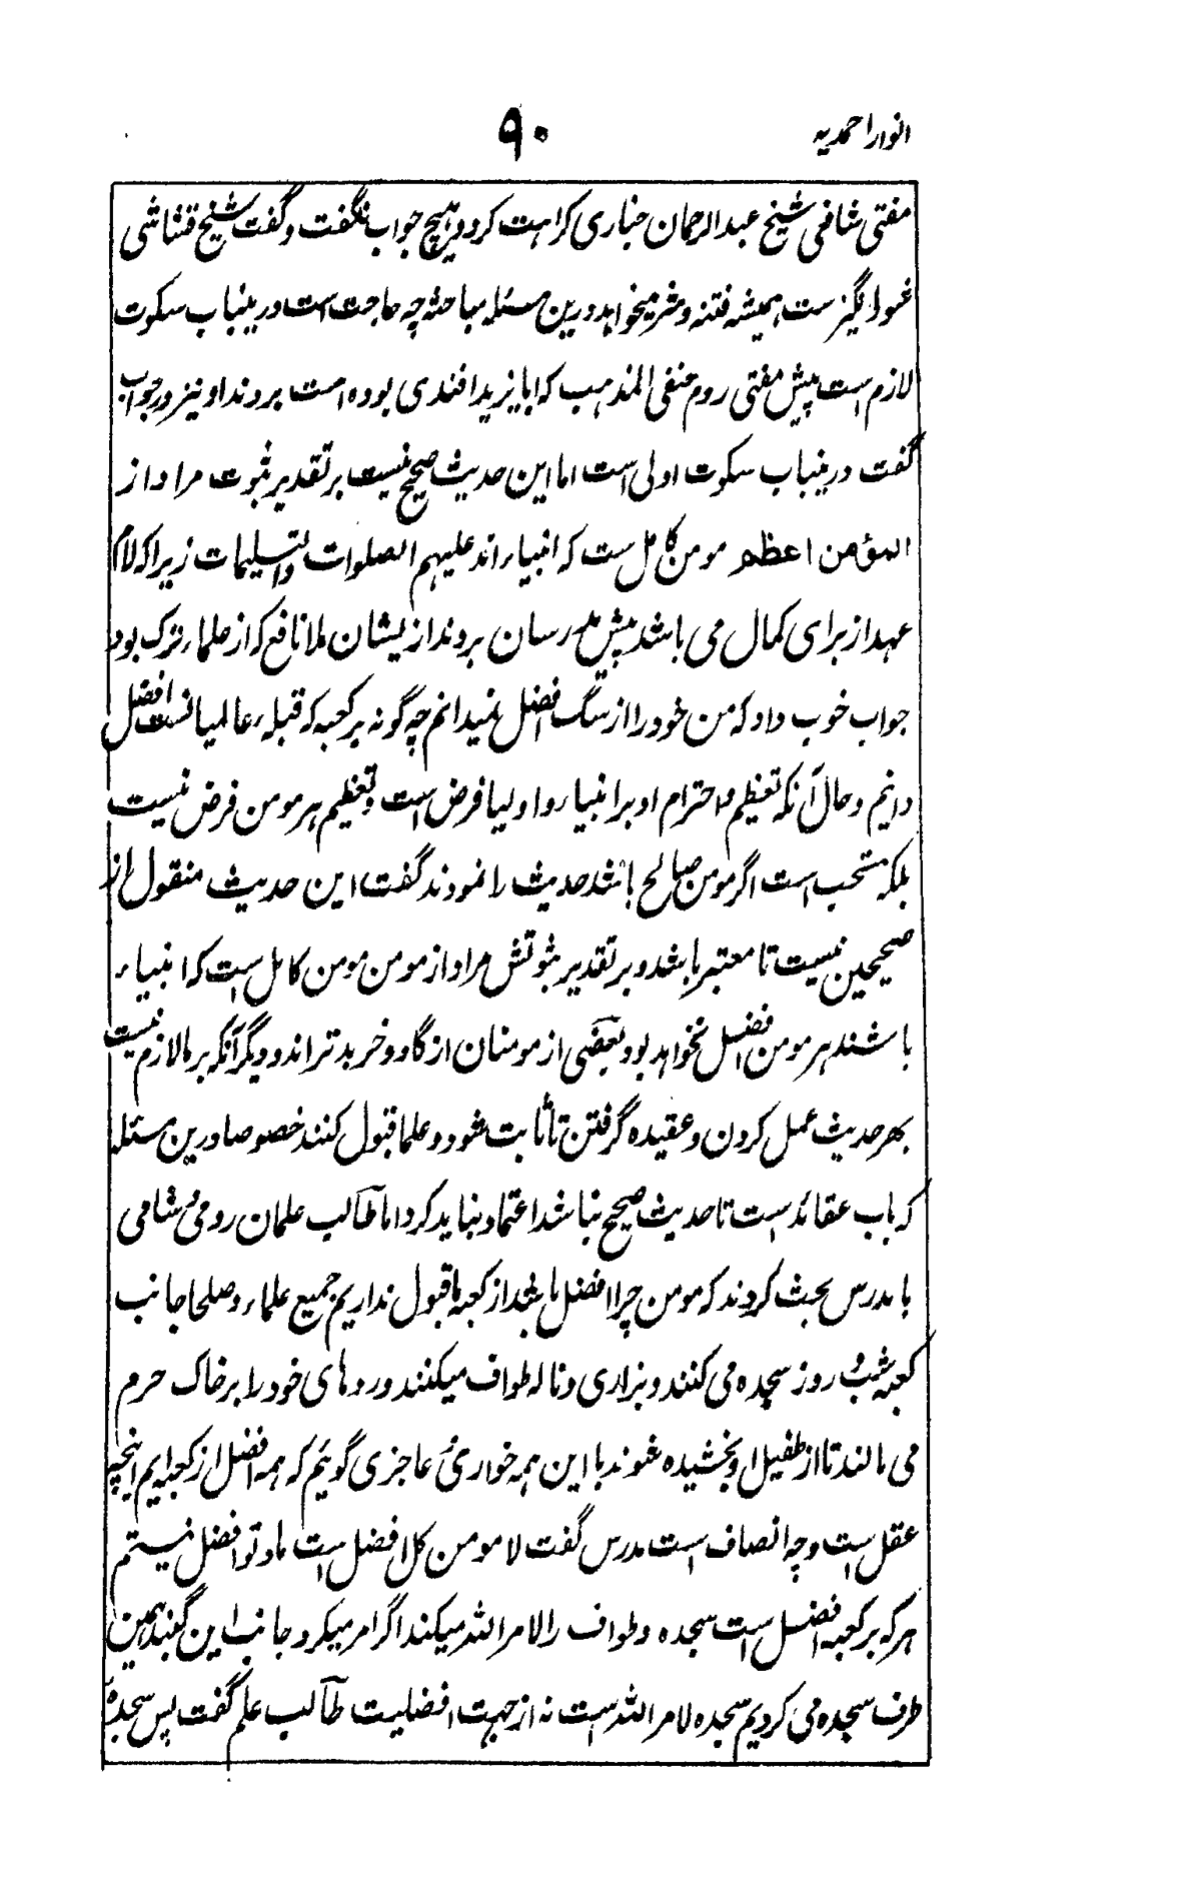 انوار احمدیه
۹۰
مفتی شافی شیخ عبدالرحمان خباری کراهت کرد و هیچ جواب نگفت و گفت شیخ قشاشی
غوا انگیز ست همیشه فتنه و شر میخواهد درین مسئله مباحثه چه حاجت است درینباب سکوت
لازم است پیش مفتی روم حنفی المذهب که ابایزید افندی بوده است بردند او نیز در جواب
گفت درینباب سکوت اولی است اما این حدیث صحیح نیست بر تقدیر ثبوت مراد از
المؤمن اعظم مومن کامل ست که انبیاء اند علیهم الصلوات والتسلیمات زیرا که لام
عهد از برای کمال می باشد پیش مدرسان بردند از یشان ملا نافع که از علماء ترک بود
جواب خوب داد که من خود را از سگ افضل نمیدانم چه گونه بر کعبه که قبلهٔ عالمیانست افضل
دانیم و حال آنکه تعظیم و احترام او بر انبیا و اولیا فرض است و تعظیم هر مومن فرض نیست
بلکه مستحب است اگر مومن صالح باشد حدیث را نمودند گفت این حدیث منقول از
صحیحین نیست تا معتبر باشد و بر تقدیر ثبوتش مراد از مومن مومن کامل است که انبیاء
باشند هر مومن افضل نخواهد بود بعضی از مومنان از گاو و خر بدتر اند و دیگر آنکه بر ما لازم نیست
بهر حدیث عمل کردن و عقیده گرفتن تا ثابت شود و علما قبول کنند خصوصا درین مسئله
که باب عقائد است تا حدیث صحیح نباشد اعتماد نباید کرد اما طالب علمان رومی و شامی
با مدرس بحث کردند که مومن چرا افضل باشد از کعبه ما قبول نداریم جمیع علماء و صلحا جانب
کعبه شب و روز سجده می کنند و بزاری و ناله طواف میکنند و روهای خود را بر خاک حرم
می مالند تا از طفیل او بخشیده شوند با این همه خواری و عاجزی گوئیم که همه افضل از کعبه ایم اینچه
عقل است و چه انصاف است مدرس گفت لا مومن کل افضل است ما و تو افضل نیستم
هر که بر کعبه افضل است سجده و طواف را لامر الله میکند اگر امر میکرد جانب این گنبد همین
طرف سجده می کردیم سجده لامر الله است نه از جهت افضلیت طالب علم گفت پس سجدهٔ